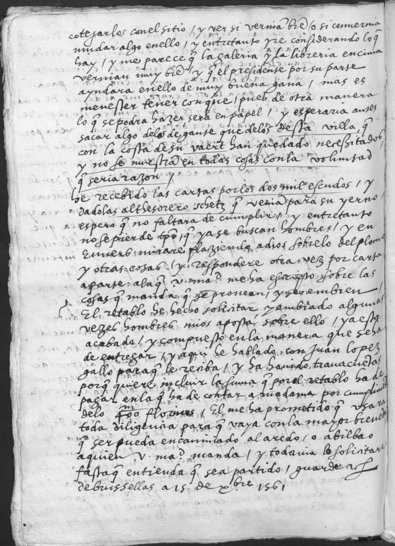 cotejarlos con el sitio / y ver si verna bie / o si converna
mudar algo en ello / y entretanto yre considerando lo q̃
hay / y me parece q̃ la galeria y la libreria encima
vernian muy bie / y q̃ el presidente por su parte
ayudara en ello de muy buena gana / mas es
menester tener con que / pues de otra manera
lo q̃ se podra hazer sera en papel / y esperaria antes
sacar algo delos de gante que delos desta villa, q̃
con la costa de su han quedado necessitados,
y no se muestra en tales cosas con la voluntad
q̃ seria razon /
He recebido las cartas por los dos mil escudos / y
dadolas al thesorero schetz q̃ venia para su yerno
espero q̃ no faltara de cumplir / y entretanto
no se pierde tpo, q̃ ya se buscan hombres / y en
Enuero mirare plaziendo a dios sobre lo del plomo
y otras cosas / y respondere otra vez por carta
aparte ala q̃ v. mad me ha escripto sobre las
cosas q̃ manda q̃ se provean / y se embien /
El retablo he hecho solicitar / y embiado algunas
vezes hombres mios aposta sobre ello / ya esta
acabado / y compuesto en la manera que se ha
de entregar / y aqui se hablado con Juan lopez
gallo para q̃ le reciba / y ha havido
porq̃ quiere incluir la suma q̃ por el retablo ha de
pagar en la q̃ ha de contar a madama por cumplimiento
delos florines / El me ha prometido q̃ usara
toda diligencia para q̃ vaya con la mayor brevedad
q̃ ser pueda encaminado a laredo / o a bilbao
a quien v. mad manda / y todavia lo solicitare
fasta q̃ entienda q̃ sea partido / guarde
de brussellas a 15 de xbre 1561